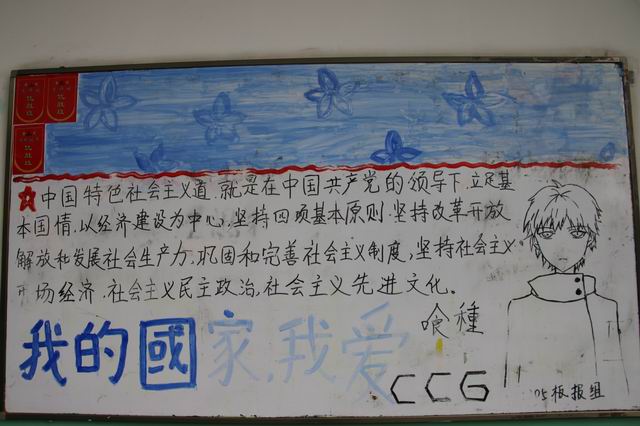 优胜班
优胜班
优胜班
中国特色社会主义道.就是在中国共产党的领导下.立足基
本国情.以经济建设为中心.坚持四项基本原则.坚持改革开放
解放和发展社会生产力.巩固和完善社会主义制度,坚持社会主义
市场经济.社会主义民主政治,社会主义先进文化。
喰種
我的國家,我爱
CCG
05板报组